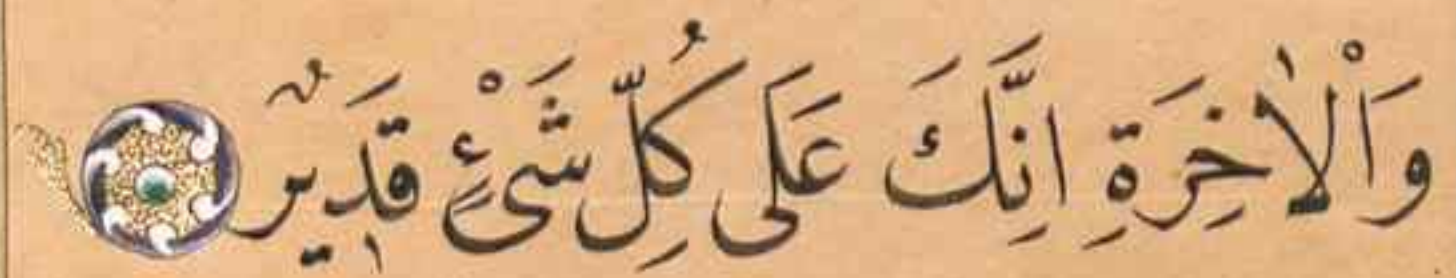 وَاْلاٰخِرَةِ اِنَّكَ عَلَى كُلِّ شَىْءٍ قَدٖيرٌ